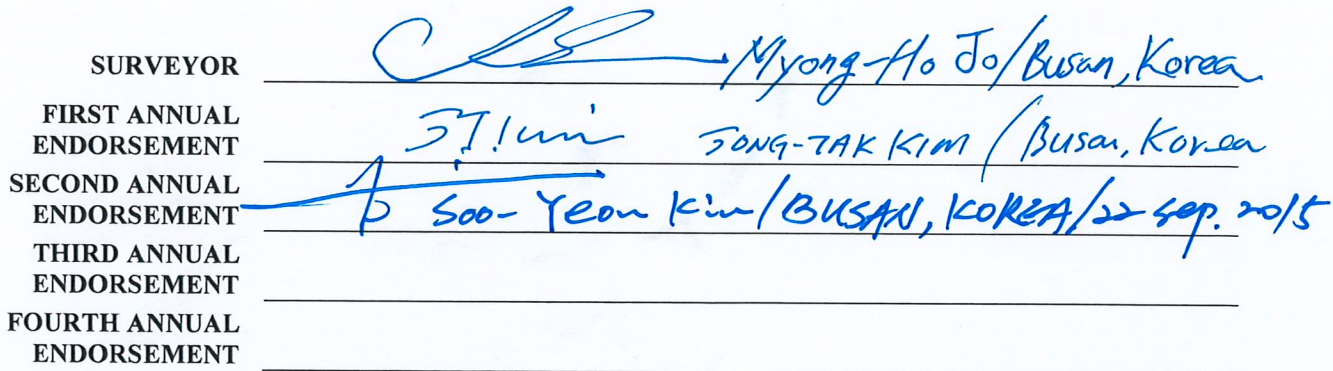 SURVEYOR Myong-Ho Jo/Busan, Korea
FIRST ANNUAL
ENDORSEMENT JONG-TAK KIM / Busan, Korea
SECOND ANNUAL
ENDORSEMENT Soo-Yeon Kim/BUSAN, KOREA/22 Sep. 2015
THIRD ANNUAL
ENDORSEMENT
FOURTH ANNUAL
ENDORSEMENT